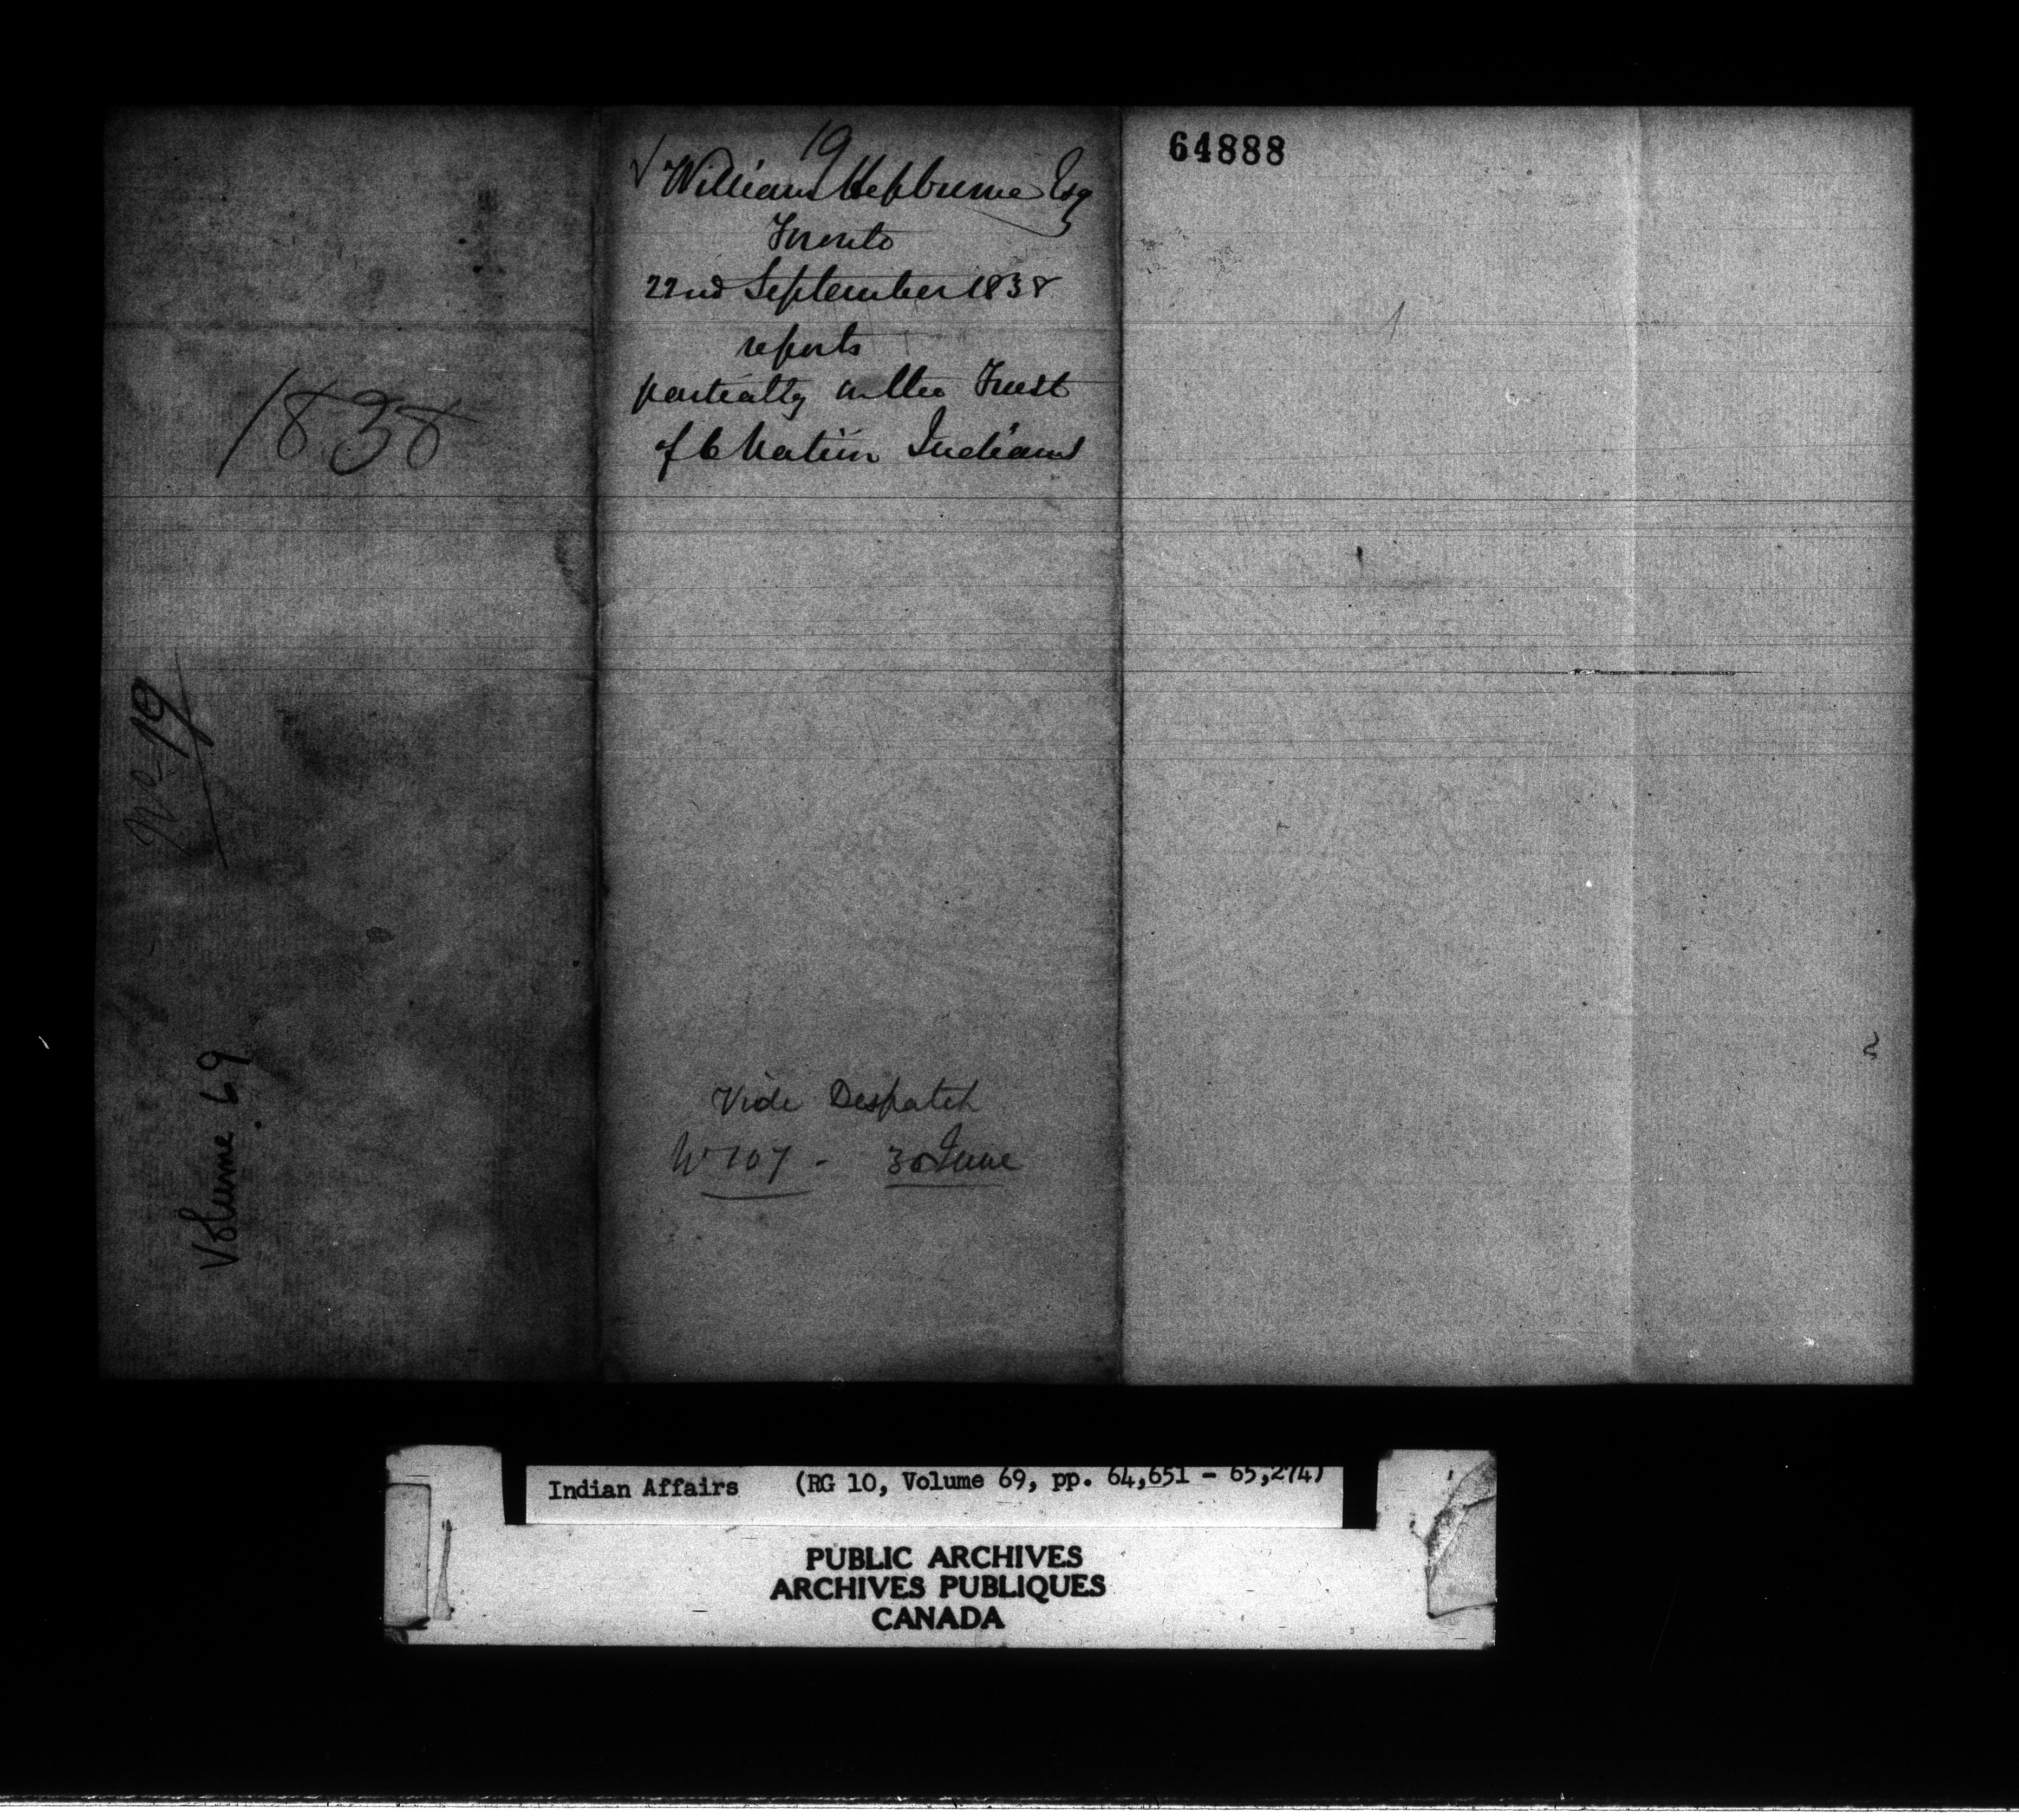 1838
No 19
Volume 69
19
William Hepburne Esq
Toronto
22nd September 1838
reports
partially on the Trust
of 6 Nation Indians
Vide Despatch
No 107 - 30 June
64888
Indian Affairs (RG 10, Volume 69, pp. 64,651 - 65,274)
PUBLIC ARCHIVES
ARCHIVES PUBLIQUES
CANADA